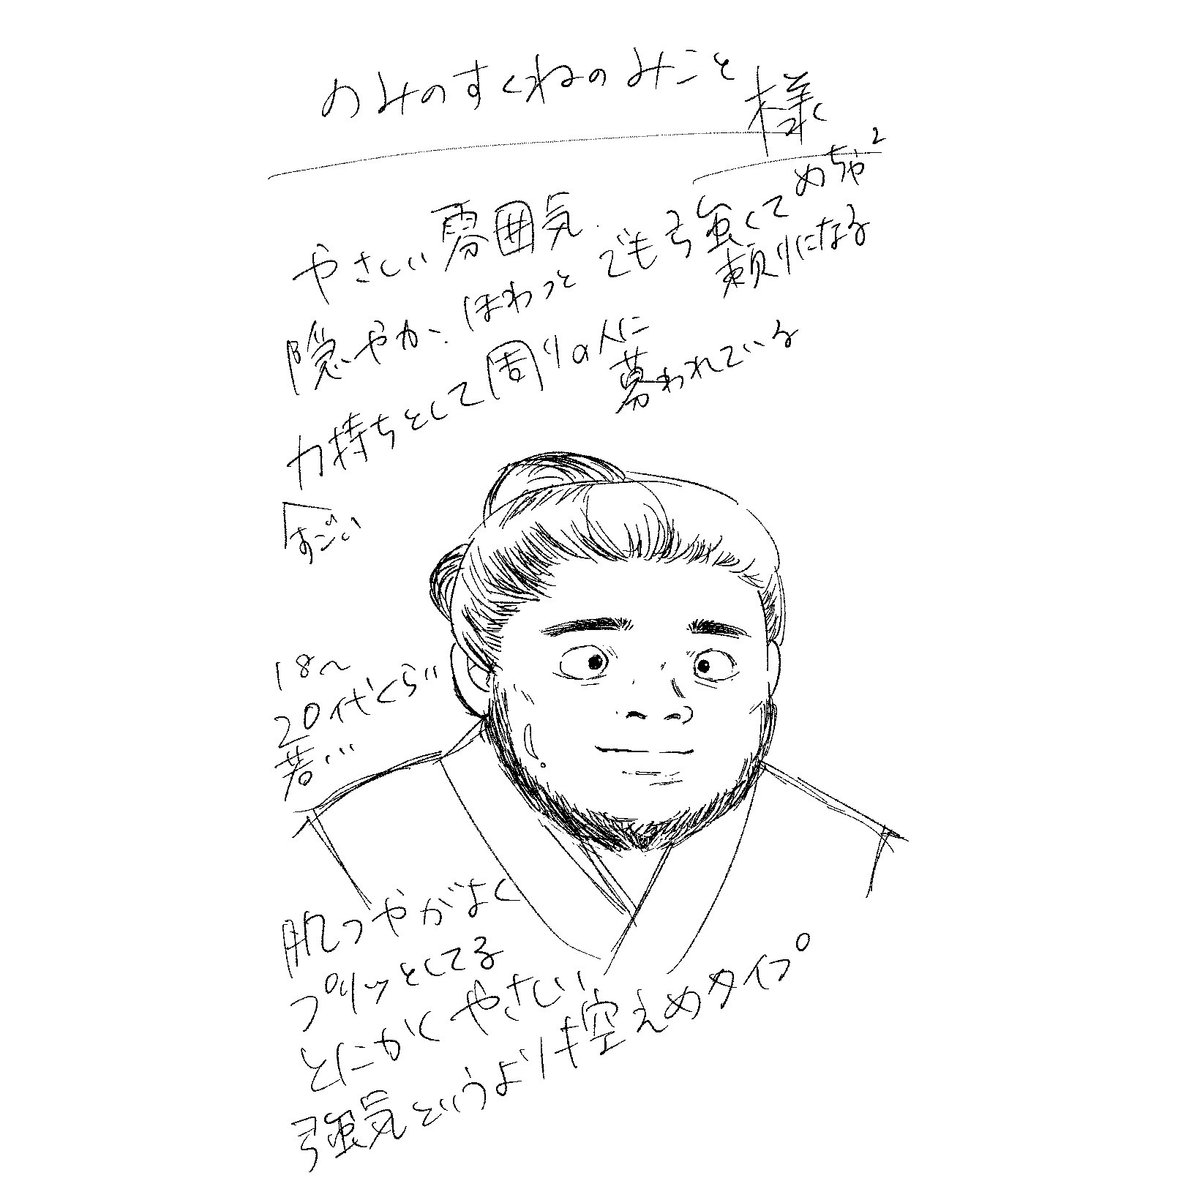 のみのすくねのみこと様
やさしい雰囲気.
隠やか、ほわっと でも強くて めちゃ²
頼りになる
力持ちとして周りの人に
慕われている
すごい
18〜
20代くらい
若い
肌つやがよく
プリッとしてる
とにかくやさしい
強気というよりも控えめタイプ